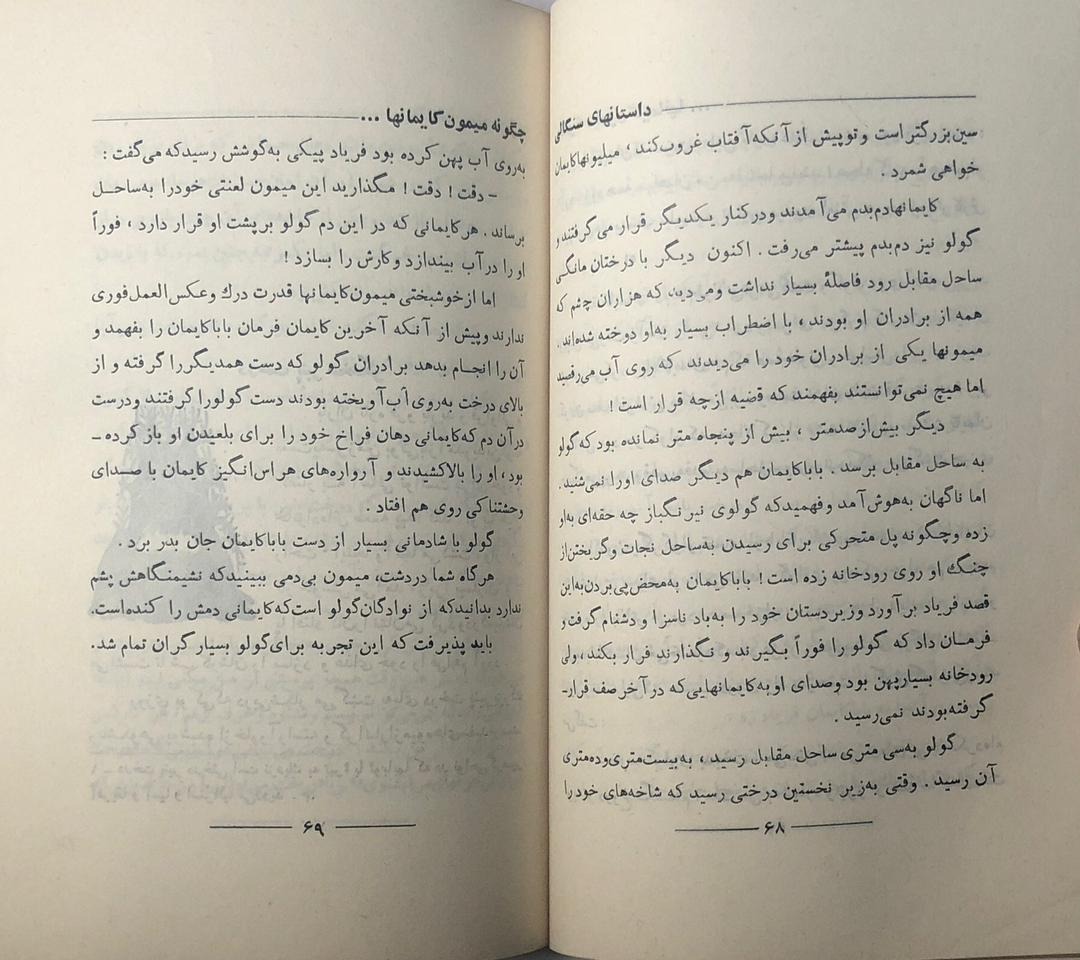 داستانهای سنگالی
سین بزرگتر است و تو پیش از آنکه آفتاب غروب کند ، میلیونها کایمان
خواهی شمرد .
کایمانها دم بدم می آمدند و در کنار یکدیگر قرار می گرفتند و
گولو نیز دم بدم پیشتر می رفت . اکنون دیگر با درختان مانگی
ساحل مقابل رود فاصلهٔ بسیار نداشت و می دید که هزاران چشم که
همه از برادران او بودند ، با اضطراب بسیار به او دوخته شده اند .
میمونها یکی از برادران خود را می دیدند که روی آب می رقصید
اما هیچ نمی توانستند بفهمند که قضیه از چه قرار است !
دیگر بیش از صد متر ، بیش از پنجاه متر نمانده بود که گولو
به ساحل مقابل برسد . باباکایمان هم دیگر صدای او را نمی شنید .
اما ناگهان به هوش آمد و فهمید که گولوی نیرنگباز چه حقه ای به او
زده و چگونه پل متحرکی برای رسیدن به ساحل نجات و گریختن از
چنگ او روی رودخانه زده است ! باباکایمان به محض پی بردن به این
قصد فریاد برآورد و زیردستان خود را به باد ناسزا و دشنام گرفت و
فرمان داد که گولو را فوراً بگیرند و نگذارند فرار بکند ، ولی
رودخانه بسیار پهن بود و صدای او به کایمانهایی که در آخر صف قرار-
گرفته بودند نمی رسید .
گولو به سی متری ساحل مقابل رسید ، به بیست متری و ده متری
آن رسید . وقتی به زیر نخستین درختی رسید که شاخه های خود را
۶۸
چگونه میمون کایمانها ...
به روی آب پهن کرده بود فریاد پیکی به گوشش رسید که می گفت :
- دقت ! دقت ! مگذارید این میمون لعنتی خود را به ساحل
برساند . هر کایمانی که در این دم گولو بر پشت او قرار دارد ، فوراً
او را در آب بیندازد و کارش را بسازد !
اما از خوشبختی میمون کایمانها قدرت درك و عکس العمل فوری
ندارند و پیش از آنکه آخرین کایمان فرمان باباکایمان را بفهمد و
آن را انجام بدهد برادران گولو که دست همدیگر را گرفته و از
بالای درخت به روی آب آویخته بودند دست گولورا گرفتند و درست
در آن دم که کایمانی دهان فراخ خود را برای بلعیدن او باز کرده -
بود ، او را بالا کشیدند و آرواره های هراس انگیز کایمان با صدای
وحشتناکی روی هم افتاد .
گولو با شادمانی بسیار از دست باباکایمان جان بدر برد .
هرگاه شما در دشت، میمون بی دمی ببینید که نشیمنگاهش پشم
ندارد بدانید که از نوادگان گولو است که کایمانی دمش را کنده است.
باید پذیرفت که این تجربه برای گولو بسیار گران تمام شد.
۶۹